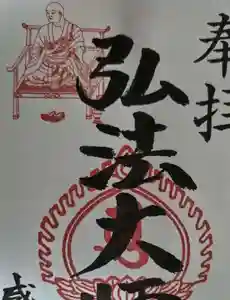 奉拝
弘法大師